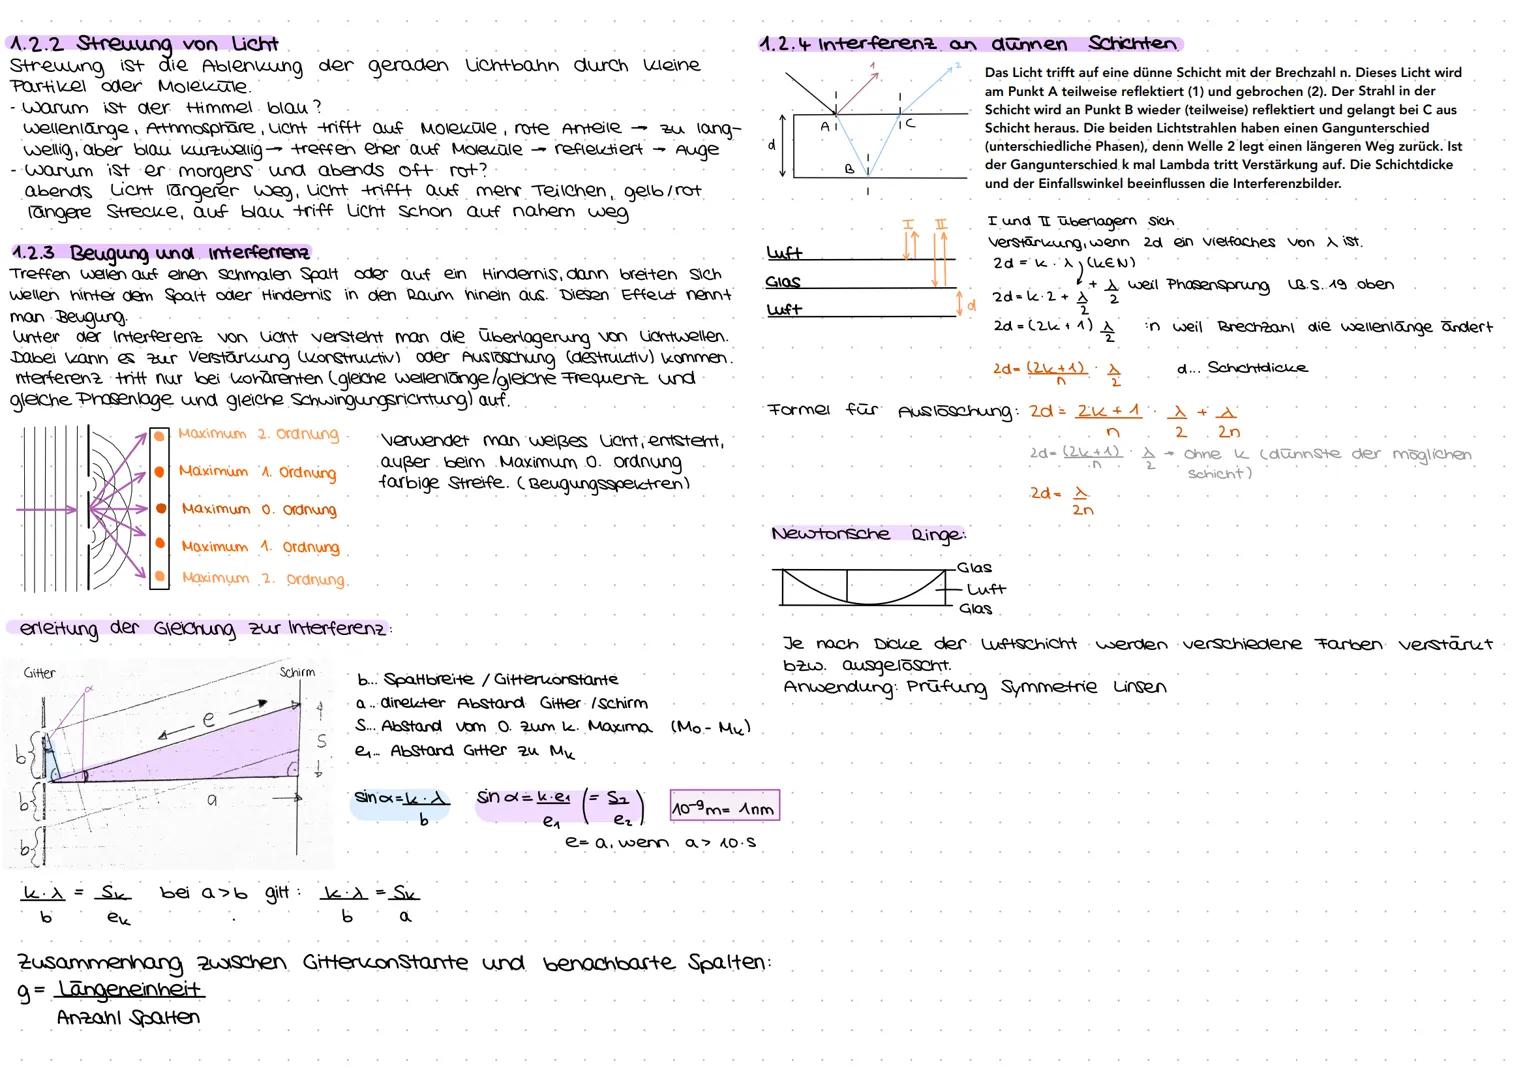 1.2.2 Streuung von Licht
Streuung ist die Ablenkung der geraden Lichtbahn durch kleine
Partikel oder Moleküle.
- Warum ist der Himmel blau?
Wellenlänge, Athmosphäre, Licht trifft auf Moleküle, rote Anteile → zu lang-
wellig, aber blau kurzwellig → treffen eher auf Moleküle → reflektiert → Auge
- Warum ist er morgens und abends oft rot?
abends Licht längerer Weg, Licht trifft auf mehr Teilchen, gelb/rot
längere Strecke, auf blau triff Licht schon auf nahem weg
1.2.3 Beugung und Interferrenz
Treffen wellen auf einen schmalen Spalt oder auf ein Hindernis, dann breiten sich
wellen hinter dem Spalt oder Hindernis in den Raum hinein aus. Diesen Effekt nennt
man Beugung.
Unter der Interferenz von Licht versteht man die Überlagerung von Lichtwellen.
Dabei kann es zur Verstärkung (konstruktiv) oder Auslöschung (destruktiv) kommen.
nterferenz tritt nur bei kohärenten (gleiche Wellenlänge/gleiche Frequenz und
gleiche Phasenlage und gleiche Schwingungsrichtung) auf.
Maximum 2. Ordnung
Maximum 1. Ordnung
Maximum 0. Ordnung
Maximum 1. Ordnung
Maximum 2. Ordnung.
Verwendet man weißes Licht, entsteht,
außer beim Maximum 0. Ordnung
farbige Streife. (Beugungsspektren)
erleitung der Gleichung zur Interferenz:
Gitter
Schirm
α
e
b
S
a
b
b
b... Spaltbreite / Gitterkonstante
a.. direkter Abstand Gitter / Schirm
S... Abstand vom 0. zum k. Maxima (M₀ - Mₖ)
e₁... Abstand Gitter zu Mₖ
sin α = k·λ / b
sin α = k·e₁ / e₁ (= S₂ / e₂)
10⁻⁹m = 1nm
e = a, wenn a > 10·S
k·λ / b = Sₖ / eₖ bei a>b gilt: k·λ / b = Sₖ / a
Zusammenhang zwischen Gitterkonstante und benachbarte Spalten:
g = Längeneinheit
Anzahl Spalten
1.2.4 Interferenz an dünnen Schichten
1
2
A
C
d
B
Das Licht trifft auf eine dünne Schicht mit der Brechzahl n. Dieses Licht wird
am Punkt A teilweise reflektiert (1) und gebrochen (2). Der Strahl in der
Schicht wird an Punkt B wieder (teilweise) reflektiert und gelangt bei C aus
Schicht heraus. Die beiden Lichtstrahlen haben einen Gangunterschied
(unterschiedliche Phasen), denn Welle 2 legt einen längeren Weg zurück. Ist
der Gangunterschied k mal Lambda tritt Verstärkung auf. Die Schichtdicke
und der Einfallswinkel beeinflussen die Interferenzbilder.
I II
Luft
Glas
Luft
d
I und II überlagern sich
Verstärkung, wenn 2d ein vielfaches von λ ist.
2d = k · λ (k∈N)
+ λ/2 weil Phasensprung LB.S. 19 oben
2d = k·2 + λ/2
2d = (2k+1) λ/2 :n weil Brechzahl die Wellenlänge ändert
2d = (2k+1)/n · λ/2 d... Schichtdicke
Formel für Auslöschung: 2d = 2k+1/n · λ/2 + λ/2n
2d = (2k+1)/n · λ/2 → ohne k (dünnste der möglichen
schicht)
2d = λ/2n
Newtonsche Ringe:
Glas
Luft
Glas
Je nach Dicke der Luftschicht werden verschiedene Farben verstärkt
bzw. ausgelöscht.
Anwendung: Prüfung Symmetrie Linsen